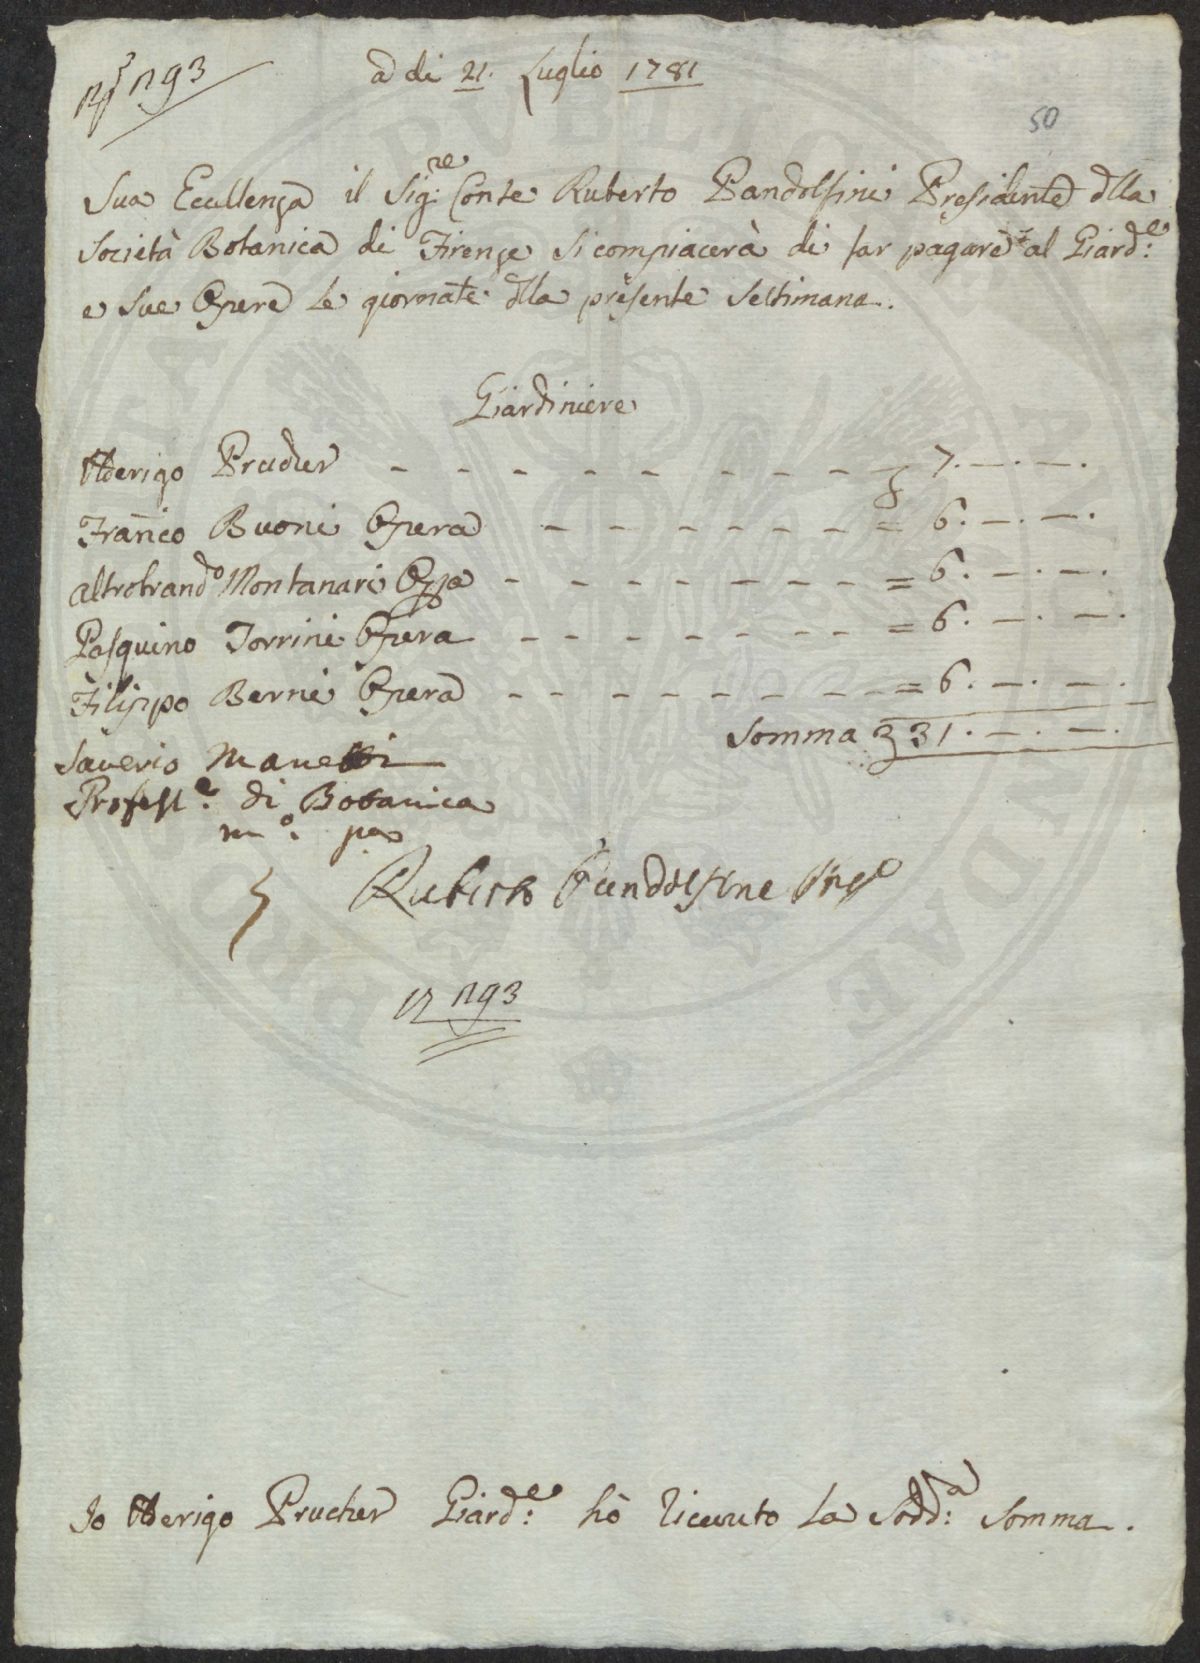 N 293
a di 21. Luglio 1781
50
Sua Eccellenza il Sig:re Conte Ruberto Pandolfini Presidente dlla
Società Botanica di Firenze si compiacerà di far pagare al Giard:e
e Sue Opere le giornate dlla presente Settimana.
Giardiniere
Aderigo Prucher - - - - - - - - - - 7. —. —.
Franco Buoni Opera - - - - - - - = 6. —. —.
Altobrando Montanari Oppa - - - - - - - - = 6. —. —.
Pasquino Torrini Opera - - - - - - - - = 6. —. —.
Filippo Berni Opera - - - - - - - - = 6. —. —.
Somma 31. —. —.
Saverio Manetti
Profess.e di Botanica
m.o pa
Ruberto Pandolfini
N 293
Io Aderigo Prucher Giard:e hò ricevuto la Sodd:a Somma.